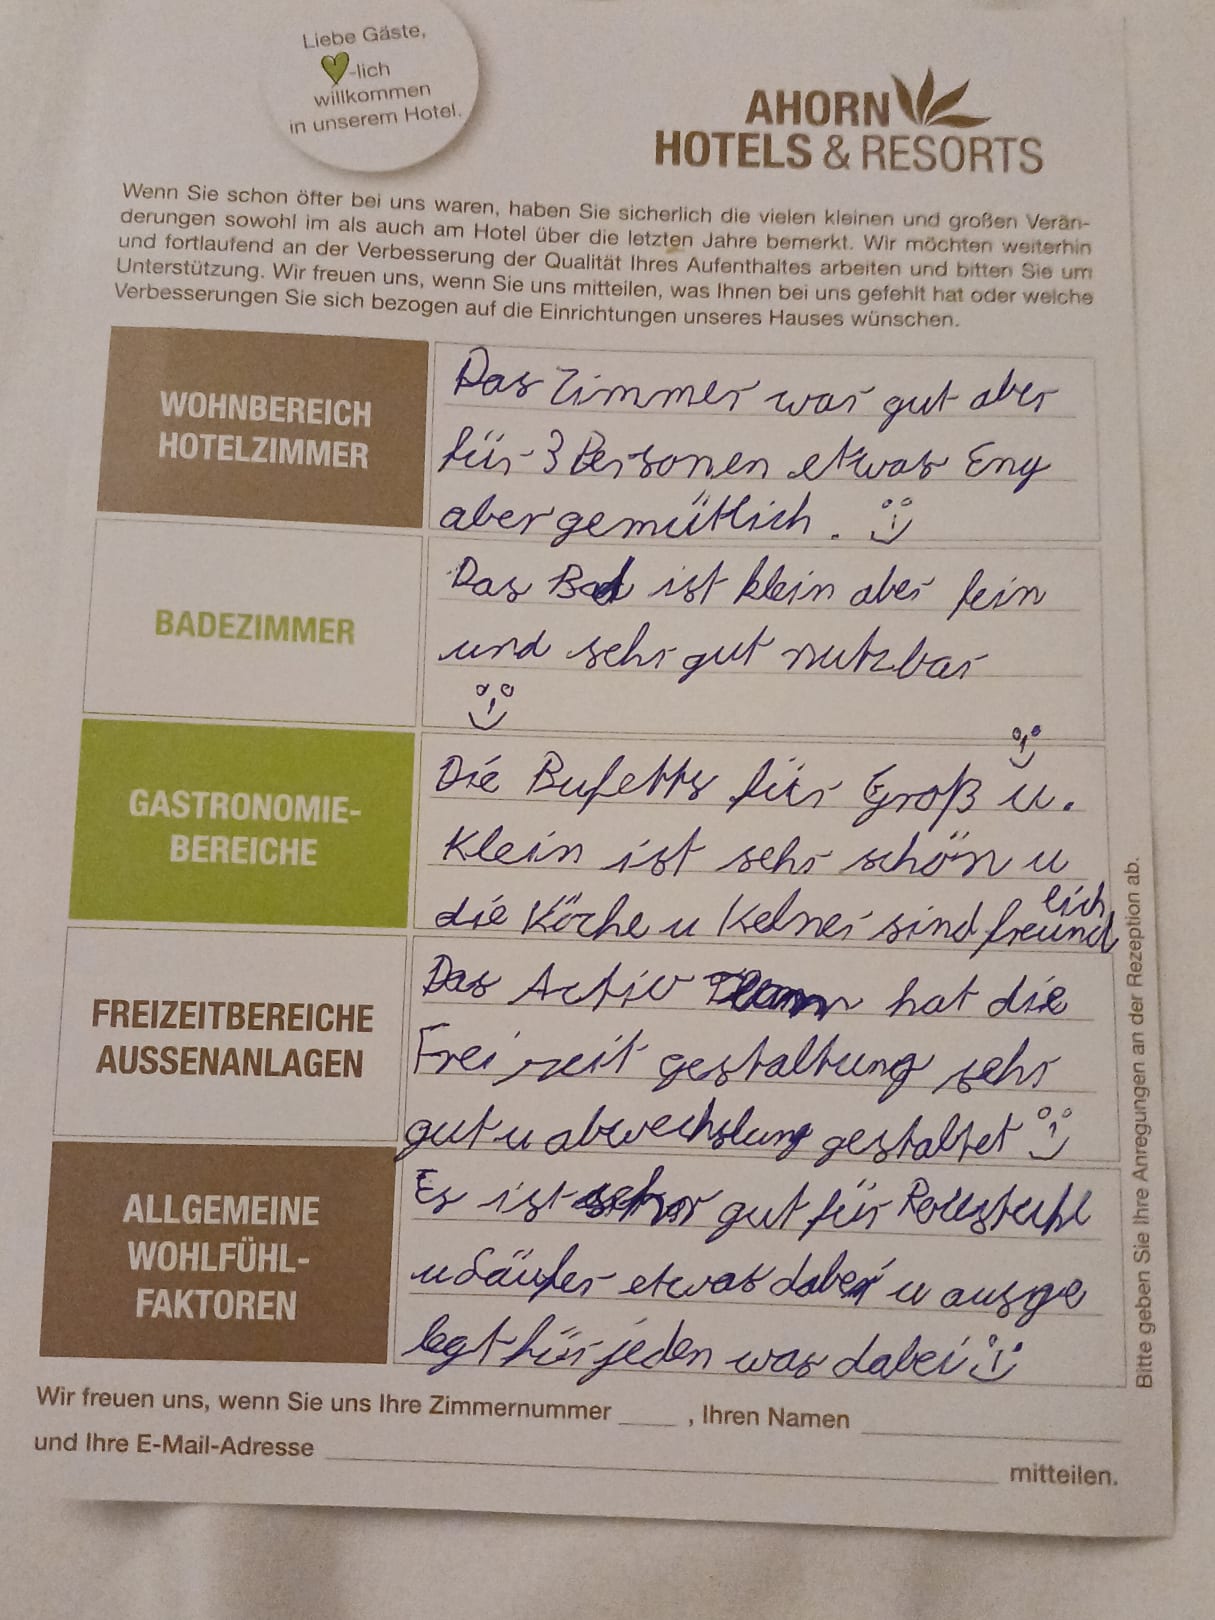 Liebe Gäste,
-lich
willkommen
in unserem Hotel.
AHORN
HOTELS & RESORTS
Wenn Sie schon öfter bei uns waren, haben Sie sicherlich die vielen kleinen und großen Verän-
derungen sowohl im als auch am Hotel über die letzten Jahre bemerkt. Wir möchten weiterhin
und fortlaufend an der Verbesserung der Qualität Ihres Aufenthaltes arbeiten und bitten Sie um
Unterstützung. Wir freuen uns, wenn Sie uns mitteilen, was Ihnen bei uns gefehlt hat oder welche
Verbesserungen Sie sich bezogen auf die Einrichtungen unseres Hauses wünschen.
WOHNBEREICH
HOTELZIMMER
Das Zimmer war gut aber
für 3 Personen etwas Eng
aber gemütlich.
BADEZIMMER
Das Bad ist klein aber fein
und sehr gut nutzbar
GASTRONOMIE-
BEREICHE
Die Bufetts für Groß u.
Klein ist sehr schön u
die Köche u Kelner sind freund
lich
FREIZEITBEREICHE
AUSSENANLAGEN
Das Activ Team hat die
Freizeit gestaltung sehr
gut u abwechslung gestaltet
ALLGEMEINE
WOHLFÜHL-
FAKTOREN
Es ist sehr gut für
u etwas dabei u ausge
legt für jeden was dabei
Wir freuen uns, wenn Sie uns Ihre Zimmernummer ____ , Ihren Namen ____
und Ihre E-Mail-Adresse ____ mitteilen.
Bitte geben Sie Ihre Anregungen an der Rezeption ab.